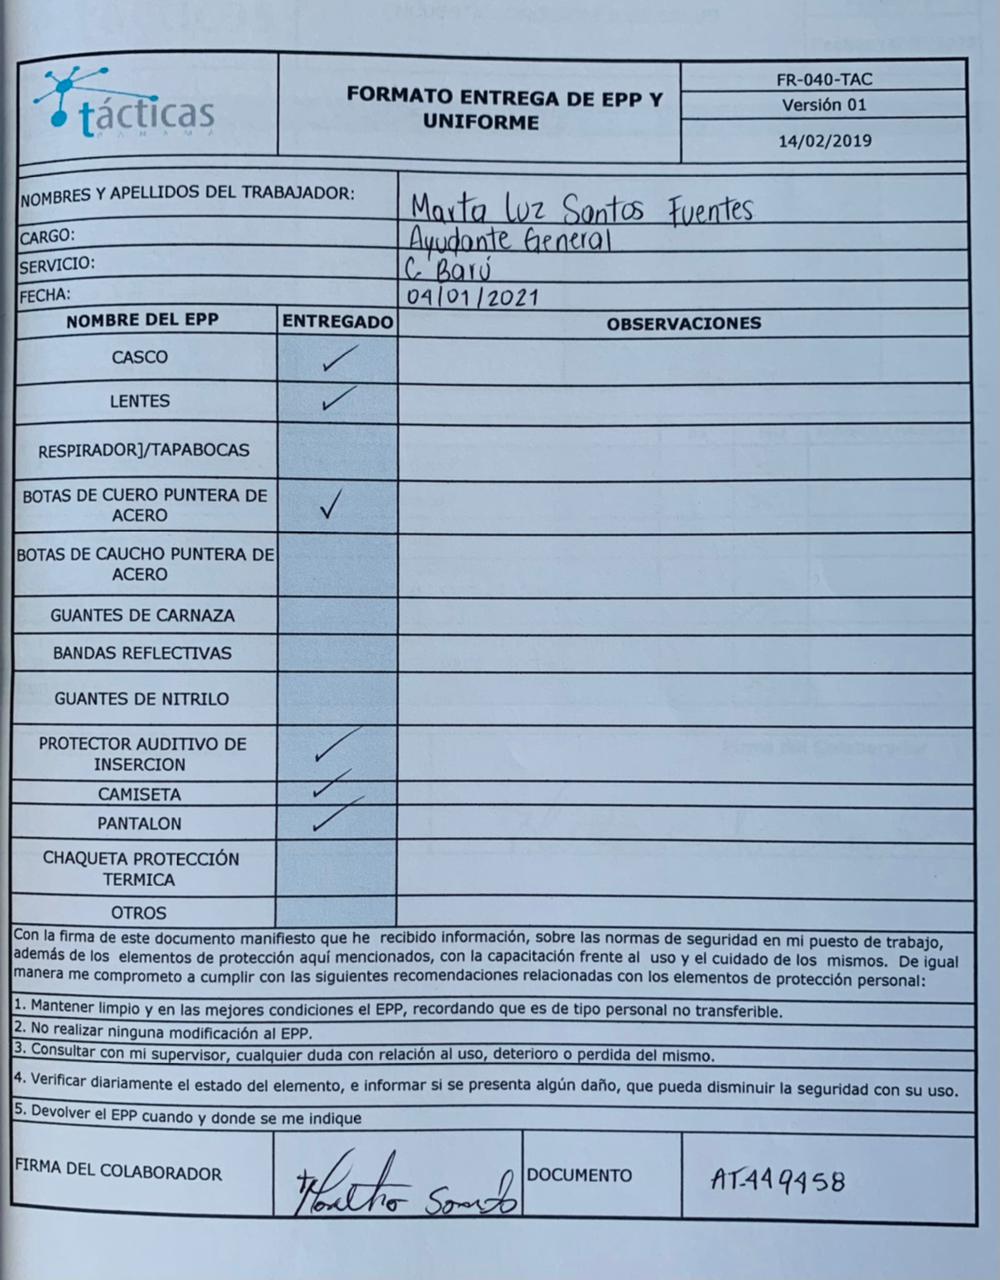 tácticas
PANAMÁ
FORMATO ENTREGA DE EPP Y
UNIFORME
FR-040-TAC
Versión 01
14/02/2019
NOMBRES Y APELLIDOS DEL TRABAJADOR:
Marta Luz Santos Fuentes
CARGO:
Ayudante General
SERVICIO:
C Barú
FECHA:
04/01/2021
NOMBRE DEL EPP ENTREGADO OBSERVACIONES
CASCO ✓
LENTES ✓
RESPIRADOR]/TAPABOCAS
BOTAS DE CUERO PUNTERA DE
ACERO ✓
BOTAS DE CAUCHO PUNTERA DE
ACERO
GUANTES DE CARNAZA
BANDAS REFLECTIVAS
GUANTES DE NITRILO
PROTECTOR AUDITIVO DE
INSERCION ✓
CAMISETA ✓
PANTALON ✓
CHAQUETA PROTECCIÓN
TERMICA
OTROS
Con la firma de este documento manifiesto que he recibido información, sobre las normas de seguridad en mi puesto de trabajo,
además de los elementos de protección aquí mencionados, con la capacitación frente al uso y el cuidado de los mismos. De igual
manera me comprometo a cumplir con las siguientes recomendaciones relacionadas con los elementos de protección personal:
1. Mantener limpio y en las mejores condiciones el EPP, recordando que es de tipo personal no transferible.
2. No realizar ninguna modificación al EPP.
3. Consultar con mi supervisor, cualquier duda con relación al uso, deterioro o perdida del mismo.
4. Verificar diariamente el estado del elemento, e informar si se presenta algún daño, que pueda disminuir la seguridad con su uso.
5. Devolver el EPP cuando y donde se me indique
FIRMA DEL COLABORADOR
DOCUMENTO
AT-449458